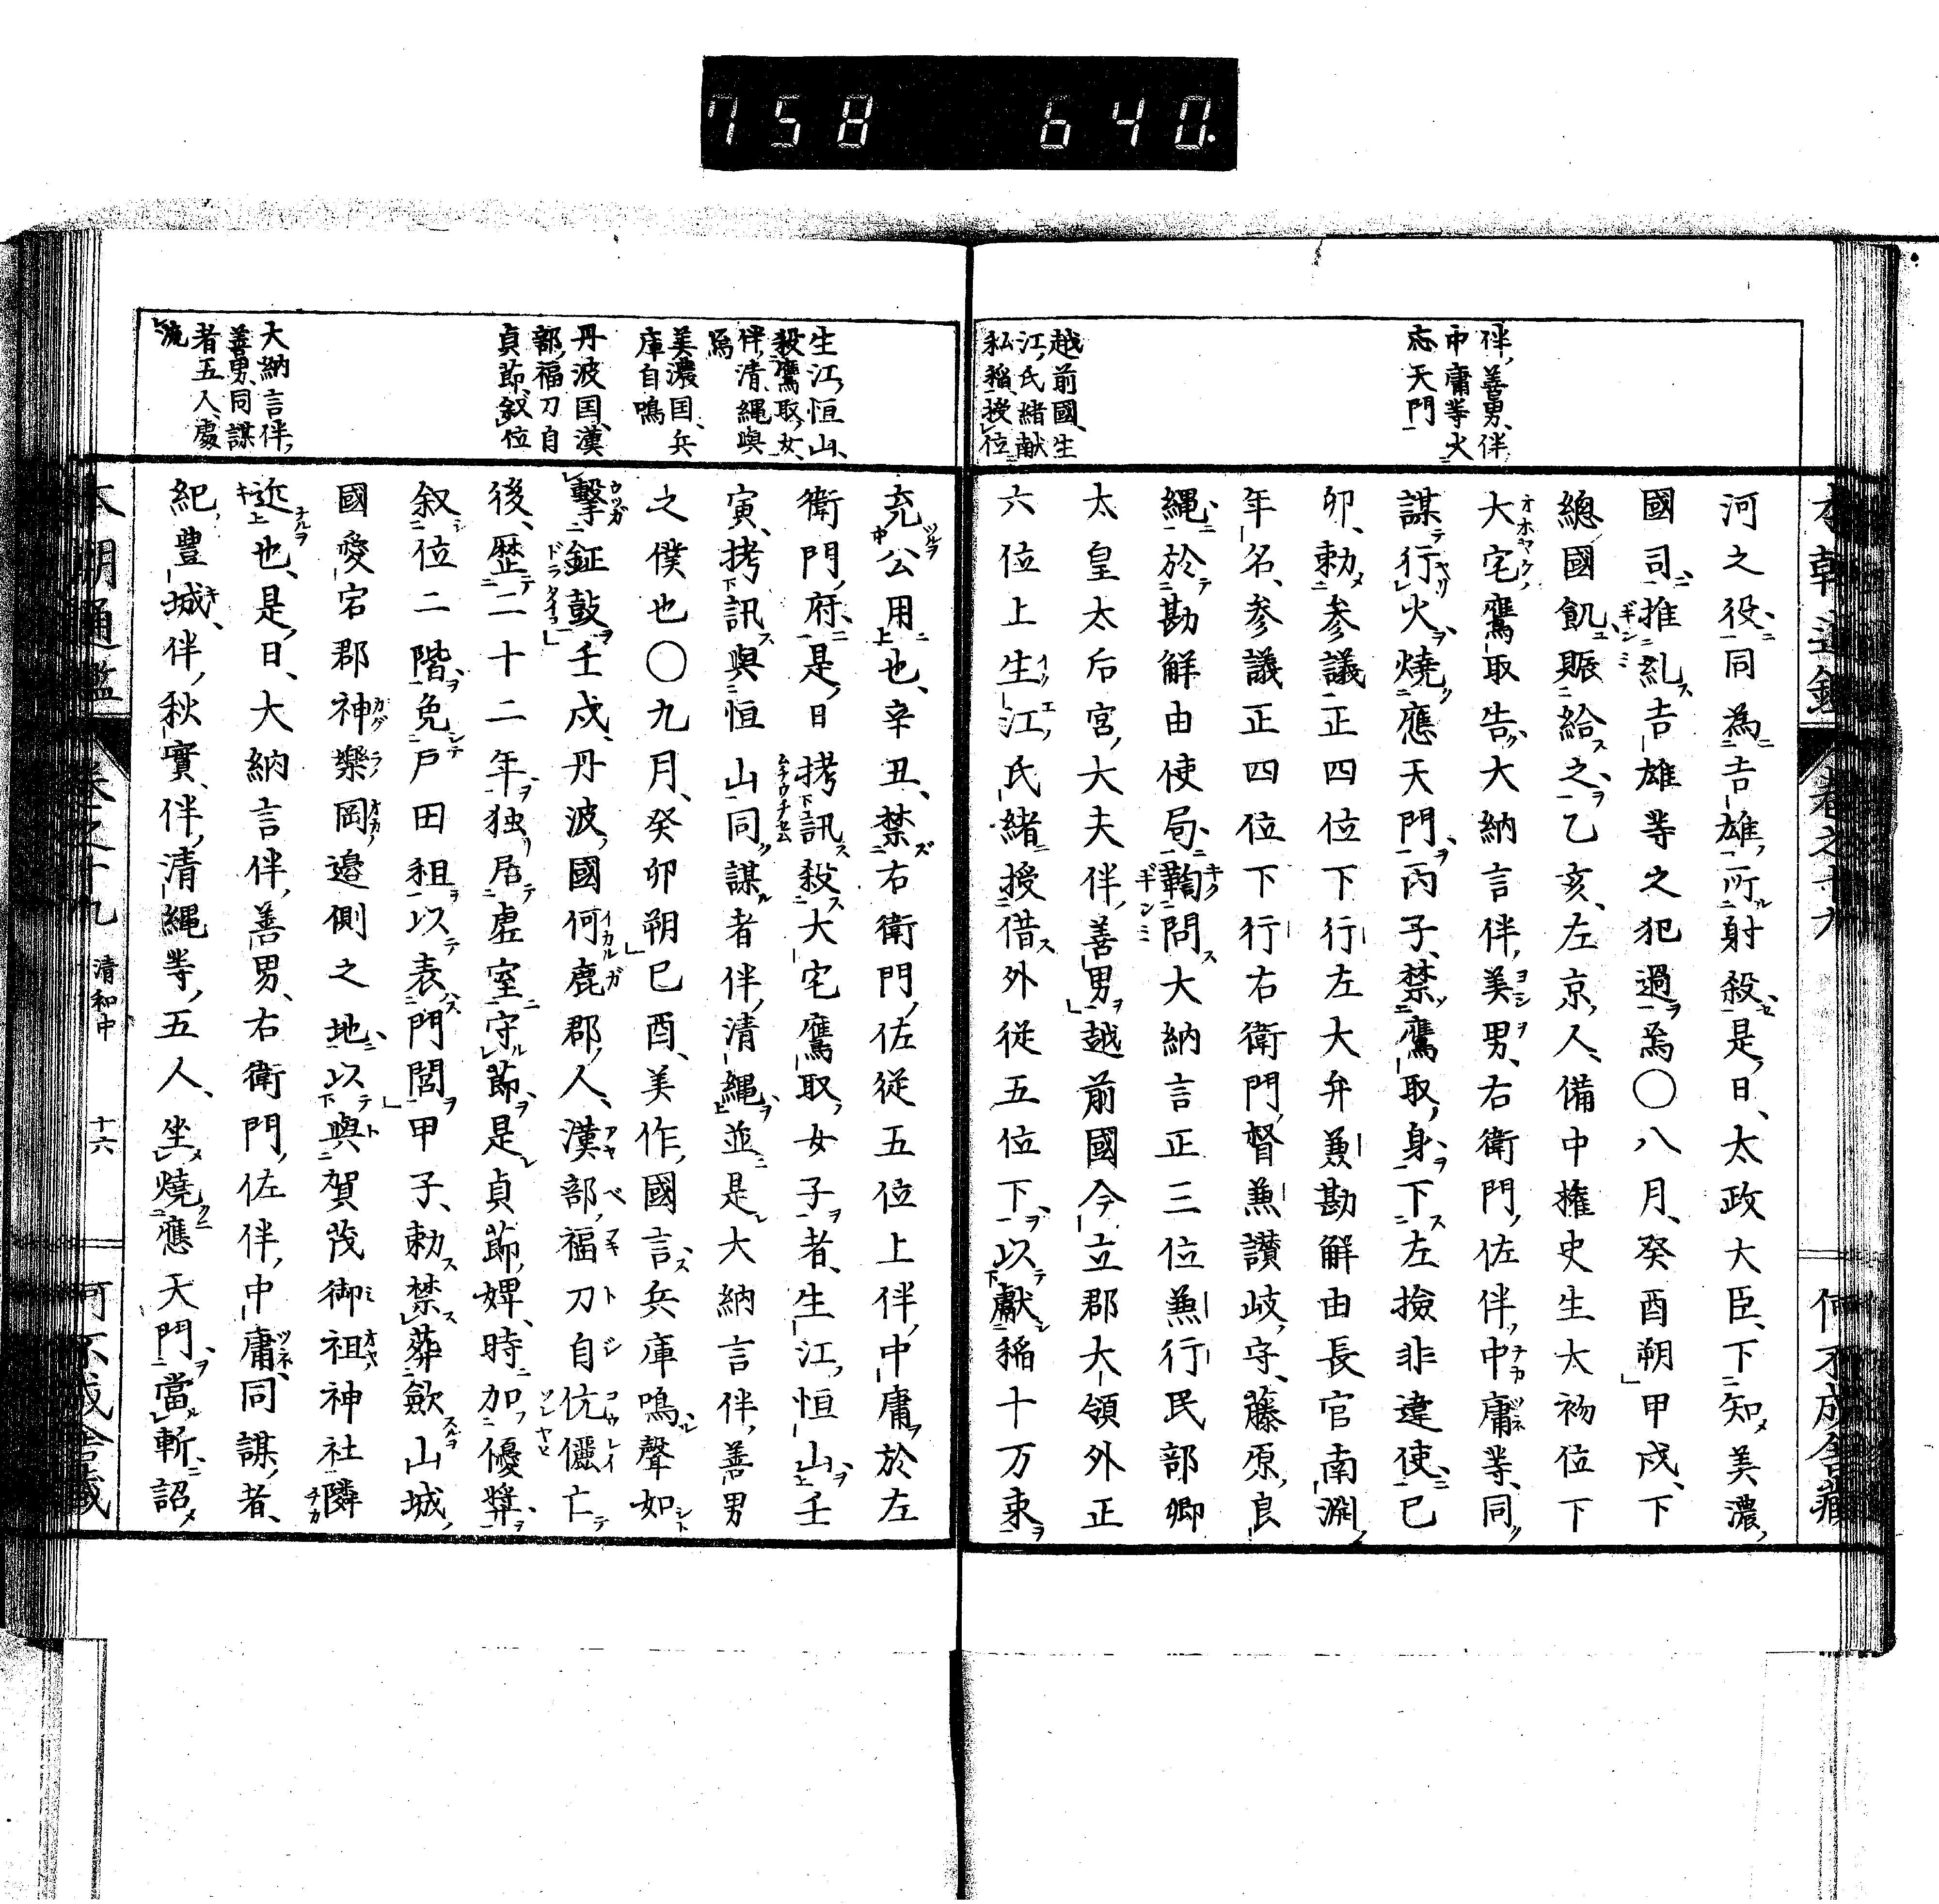 758 640.
伴善男伴
中庸等火
忘天門
越前國生
江氏緒献
私稲授位
河之役同為吉雄所射殺是日太政大臣下知美濃
國司推糺吉雄等之犯過焉〇八月癸酉朔甲戌下
總國飢賑給之乙亥左京人備中權史生大初位下
大宅鷹取告大納言伴美男右衛門佐伴中庸等同
謀行火燒應天門丙子禁鷹取身下左撿非違使己
卯勅參議正四位下行左大弁兼勘解由長官南淵
年名參議正四位下行右衛門督兼讃岐守藤原良
縄於勘解由使局鞫問大納言正三位兼行民部卿
太皇太后宮大夫伴善男越前國今立郡大領外正
六位上生江氏緒授借外從五位下以獻稲十万束
本朝通鑑 卷之十九 何不成舍藏
生江恒山
殺鷹取女
伴清縄與
焉
美濃国兵
庫自鳴
丹波国漢
部福刀自
貞節叙位
大納言伴
善男同謀
者五人處
流
充公用也辛丑禁右衛門佐從五位上伴中庸於左
衛門府是日拷訊殺大宅鷹取女子者生江恒山壬
寅拷訊與恒山同謀者伴清縄並是大納言伴善男
之僕也〇九月癸卯朔己酉美作國言兵庫鳴聲如
擊鉦鼓壬戌丹波國何鹿郡人漢部福刀自伉儷亡
後歷二十二年独居虛室守節是貞節婢時加優奬
叙位二階免戸田租以表門閭甲子勅禁葬歛山城
國愛宕郡神樂岡邊側之地以與賀茂御祖神社隣
近也是日大納言伴善男右衛門佐伴中庸同謀者
紀豊城伴秋實伴清縄等五人坐燒應天門當斬詔
本朝通鑑 卷之十九 清和中 十六 何不成舍藏